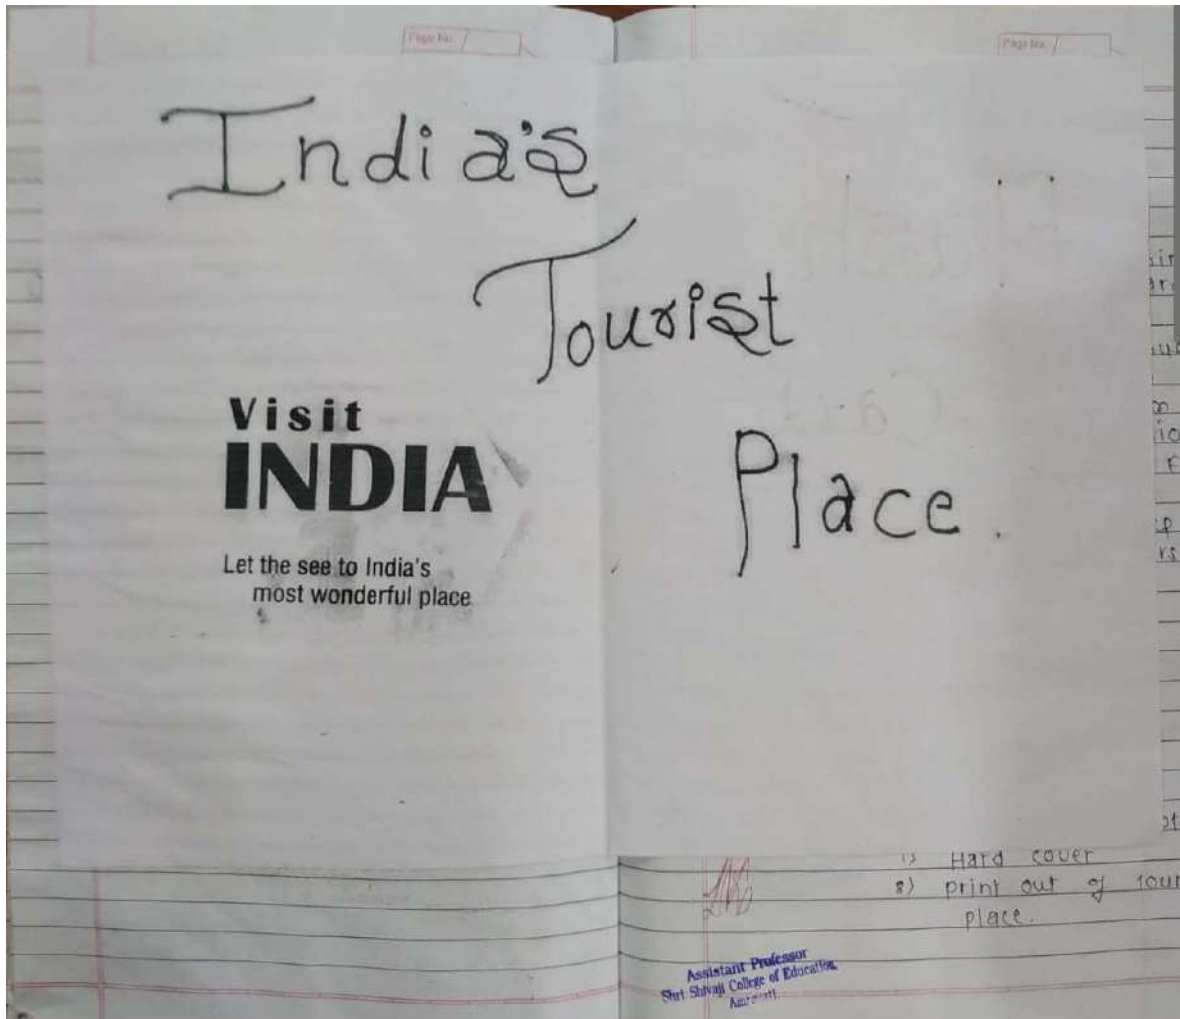 Page No.
Page No.
India's
Tourist
Place.
Visit
INDIA
Let the see to India's
most wonderful place
Hard cover
8) print out of tour
place.
Assistant Professor
Shri Shivaji College of Education,
Amravati